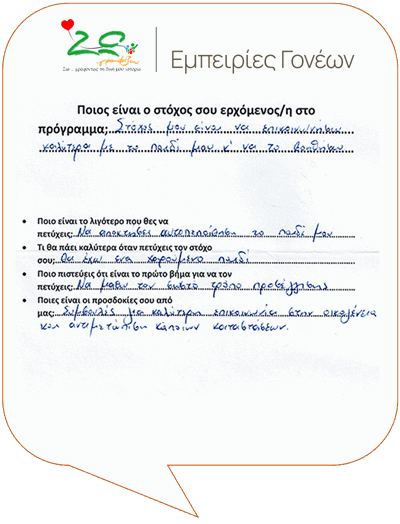 Ζω ... γράφοντας τη δική μου ιστορία
Εμπειρίες Γονέων
Ποιος είναι ο στόχος σου ερχόμενος/η στο
πρόγραμμα; Στόχος μου είναι να επικοινωνήσω
καλύτερα με το παιδί μου κ' να το βοηθήσω
• Ποιο είναι το λιγότερο που θες να
πετύχεις; Να αποκτήσει αυτοπεποίθηση το παιδί μου
• Τι θα πάει καλύτερα όταν πετύχεις τον στόχο
σου; Θα έχω ένα χαρούμενο παιδί
• Ποιο πιστεύεις ότι είναι το πρώτο βήμα για να τον
πετύχεις; Να μάθω τον σωστό τρόπο προσέγγισης
• Ποιες είναι οι προσδοκίες σου από
μας; Συμβουλές για καλύτερη επικοινωνία στην οικογένεια
και αντιμετώπιση κάποιων καταστάσεων.